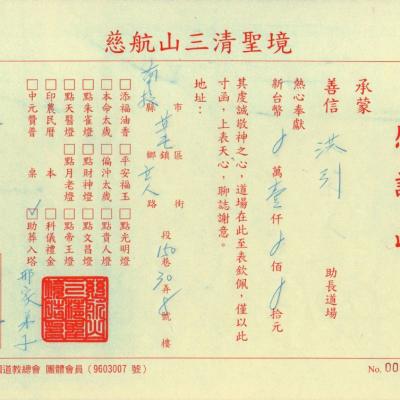 慈航山三清聖境
承蒙
善信 洪引 助長道場
熱心奉獻
新台幣 萬壹仟 佰 拾元
其虔誠敬神之心，道場在此至表欽佩，僅以此
寸函，上表天心，聊誌謝意。
地址：
縣市 鄉鎮區 路街 段150巷30弄 號 樓
□添福油香 □平安福玉 □點光明燈
□本命太歲 □偏沖太歲 □點貴人燈
□點朱雀燈 □點財神燈 □點文昌燈
□點天醫燈 □點月老燈 □點帝王燈
□印農民曆 本 □科儀禮金
□中元贊普 桌 ☑助葬入塔
邢家弟子
道教總會 團體會員（9603007 號）
No. 00